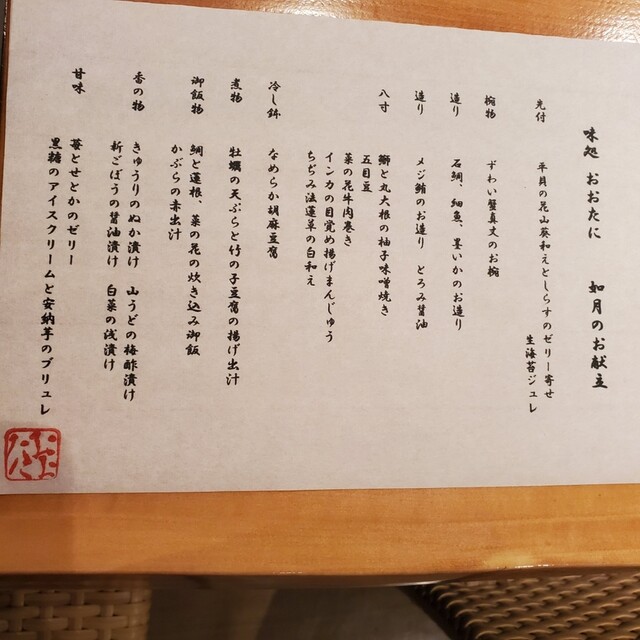 味処 おおたに 如月のお献立
先付 平貝の花山葵和えとしらすのゼリー寄せ
生海苔ジュレ
椀物 ずわい蟹真丈のお椀
造り 石鯛、細魚、墨いかのお造り
造り メジ鮪のお造り とろみ醤油
八寸 鰤と丸大根の柚子味噌焼き
五目豆
菜の花牛肉巻き
インカの目覚め揚げまんじゅう
ちぢみ法蓮草の白和え
冷し鉢 なめらか胡麻豆腐
煮物 牡蠣の天ぷらと竹の子豆腐の揚げ出汁
御飯物 鯛と蓮根、菜の花の炊き込み御飯
かぶらの赤出汁
香の物 きゅうりのぬか漬け 山うどの梅酢漬け
新ごぼうの醤油漬け 白菜の浅漬け
甘味 苺とせとかのゼリー
黒糖のアイスクリームと安納芋のブリュレ
おおたに